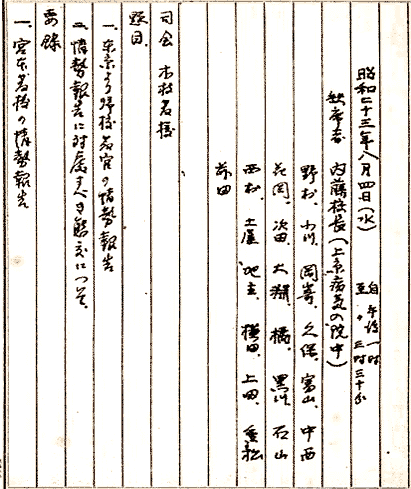 昭和二十三年八月四日(水)
自 午后一時
至 〃 三時三十分
欠席者 内藤校長(上京病気の院中)
野村、小川、岡嵜、久保、富山、中西
花岡 次田、大淵、橘、黒川 石山
西村、土屋 地主、横田、上田、重松
前田
司会 木村君様
題目
一、東京より帰校 官の情勢報告
二、情勢報告に対處すべき態度について
要録
一、宮本 の情勢報告